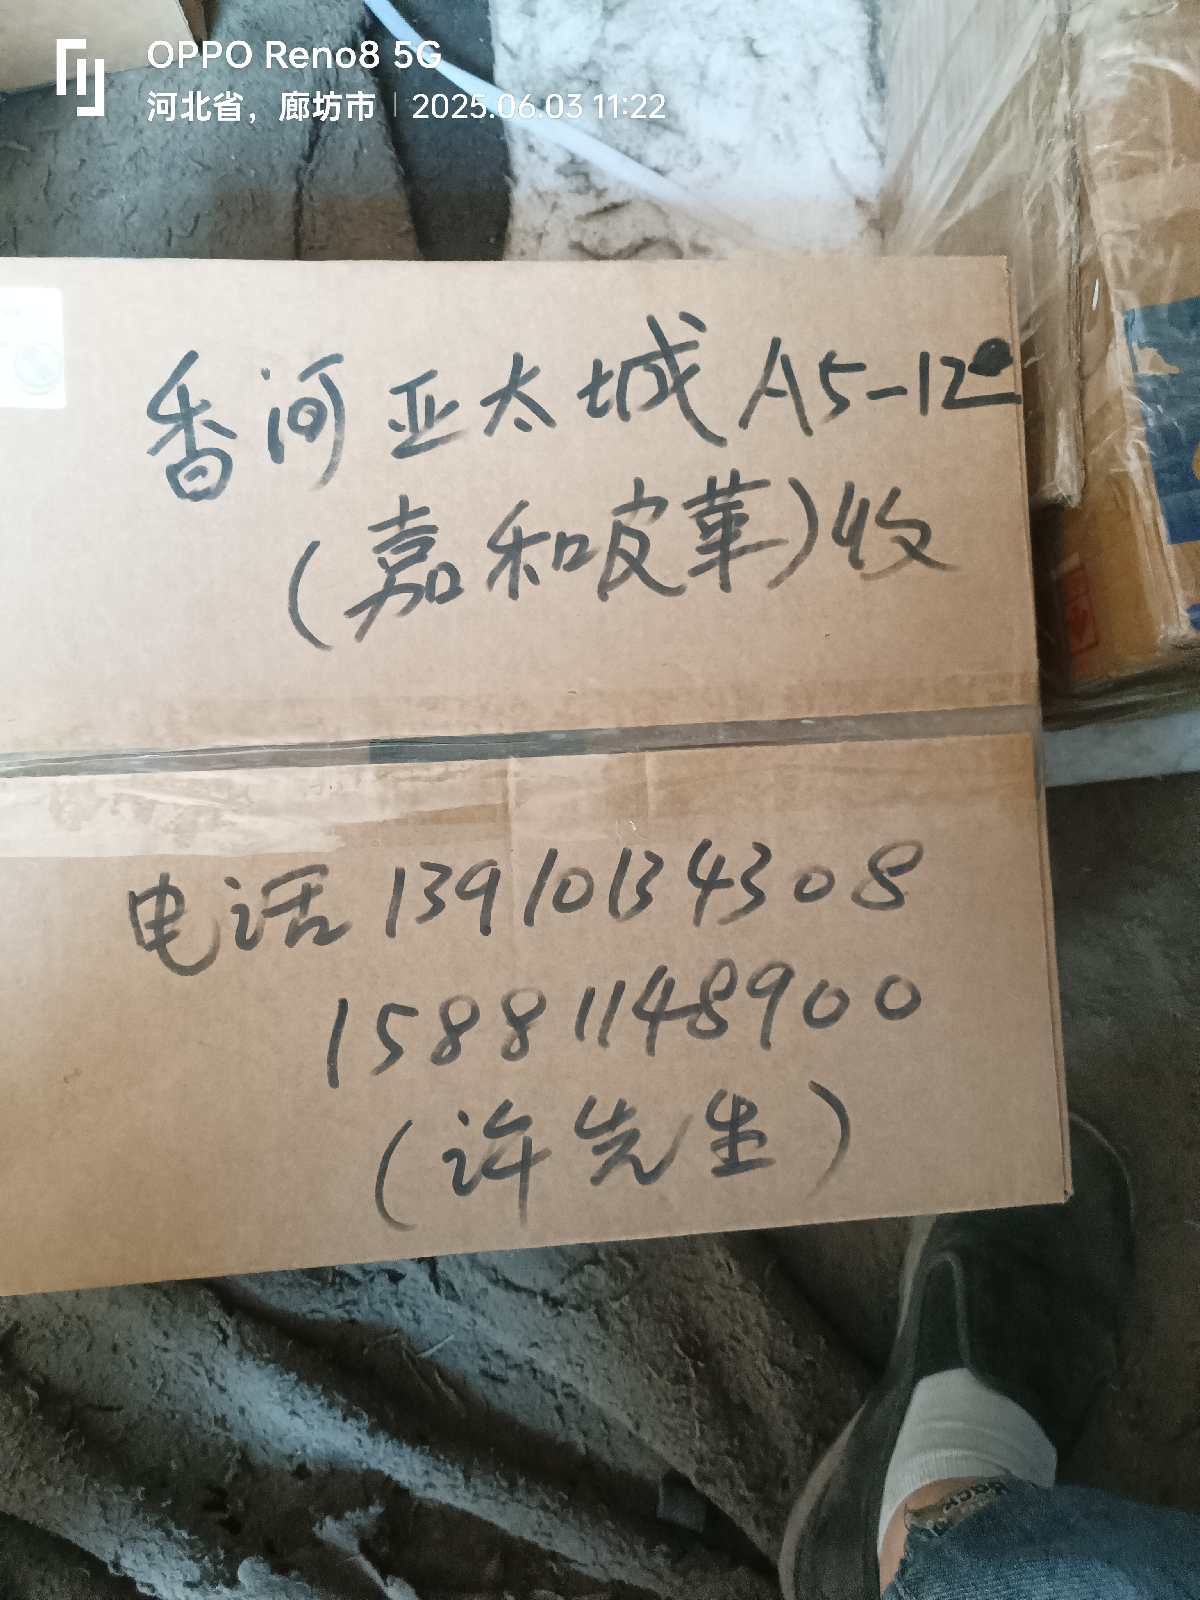 OPPO Reno8 5G
河北省，廊坊市 | 2025.06.03 11:22
香河亚太城A5-12
(嘉和皮革)收
电话 13910134308
15881148900
(许先生)